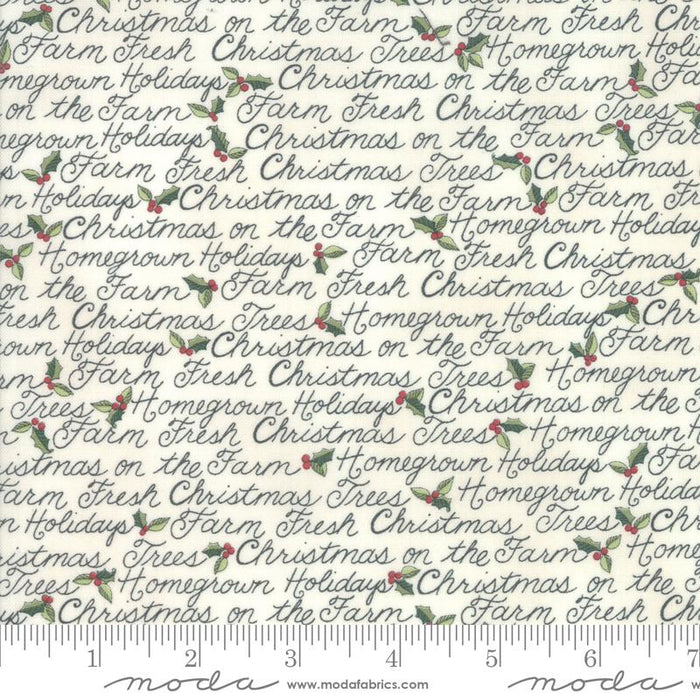 Christmas on the Farm Farm Fresh Christmas
Farm Fresh Christmas Trees Homegrown Holi
megrown Holidays Christmas on the Farm
on the Farm Farm Fresh Christmas Trees
negrown Holidays Christmas on the Farm Fa
Farm Fresh Christmas Trees Christmas
n Holidays Christmas on the Farm Farm
ees Christmas on the Farm Homegrown Holida
Homegrown Holidays Farm Fresh Christmas
on the Farm Farm Fresh Christmas Trees
resh Christmas Trees Homegrown Holidays
own Holidays Christmas on the Farm Farm
rm Farm Fresh Christmas Trees Homegrown
Trees Homegrown Holidays Christmas on the
Farm Fresh Christmas Trees Homegrown
istmas on the Farm Homegrown Holidays Fa
arm Fresh Christmas Trees Christmas
n Holidays Farm Fresh Christmas Trees
istmas Trees Christmas on the Farm Home
Trees Homegrown Holidays Christmas on the
Christmas on the Farm Farm Fresh Ch
1 2 3 4 5 6 7
moda www.modafabrics.com moda